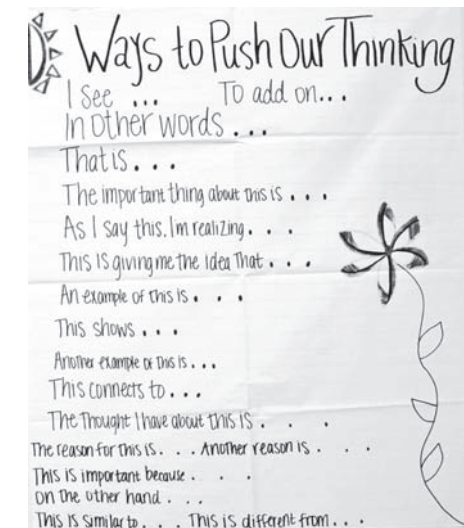 Ways to Push Our Thinking
I See ... To add on...
In other words ...
That is ...
The important thing about this is ...
As I say this. I'm realizing ...
This is giving me the idea That ...
An example of this is ...
This shows ...
Another example of this is ...
This connects to ...
The Thought I have about this is ...
The reason for this is ... Another reason is ...
This is important because ...
on the other hand ...
This is similar to ... This is different from ...